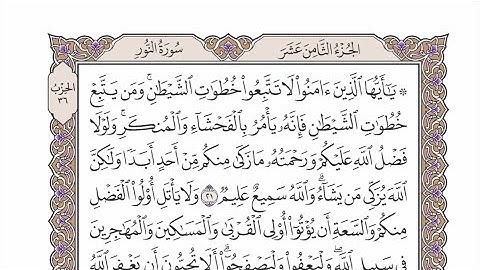 الجُزْءُ الثَّامِنَ عَشَرَ
سُورَةُ النُّورِ
الحِزْبُ
٣٦
۞ يَٰٓأَيُّهَا ٱلَّذِينَ ءَامَنُوا۟ لَا تَتَّبِعُوا۟ خُطُوَٰتِ ٱلشَّيْطَٰنِ ۚ وَمَن يَتَّبِعْ
خُطُوَٰتِ ٱلشَّيْطَٰنِ فَإِنَّهُۥ يَأْمُرُ بِٱلْفَحْشَآءِ وَٱلْمُنكَرِ ۚ وَلَوْلَا
فَضْلُ ٱللَّهِ عَلَيْكُمْ وَرَحْمَتُهُۥ مَا زَكَىٰ مِنكُم مِّنْ أَحَدٍ أَبَدًا وَلَٰكِنَّ
ٱللَّهَ يُزَكِّى مَن يَشَآءُ ۗ وَٱللَّهُ سَمِيعٌ عَلِيمٌ ٢١ وَلَا يَأْتَلِ أُو۟لُوا۟ ٱلْفَضْلِ
مِنكُمْ وَٱلسَّعَةِ أَن يُؤْتُوٓا۟ أُو۟لِى ٱلْقُرْبَىٰ وَٱلْمَسَٰكِينَ وَٱلْمُهَٰجِرِينَ
فِى سَبِيلِ ٱللَّهِ ۖ وَلْيَعْفُوا۟ وَلْيَصْفَحُوٓا۟ ۗ أَلَا تُحِبُّونَ أَن يَغْفِرَ ٱللَّهُ